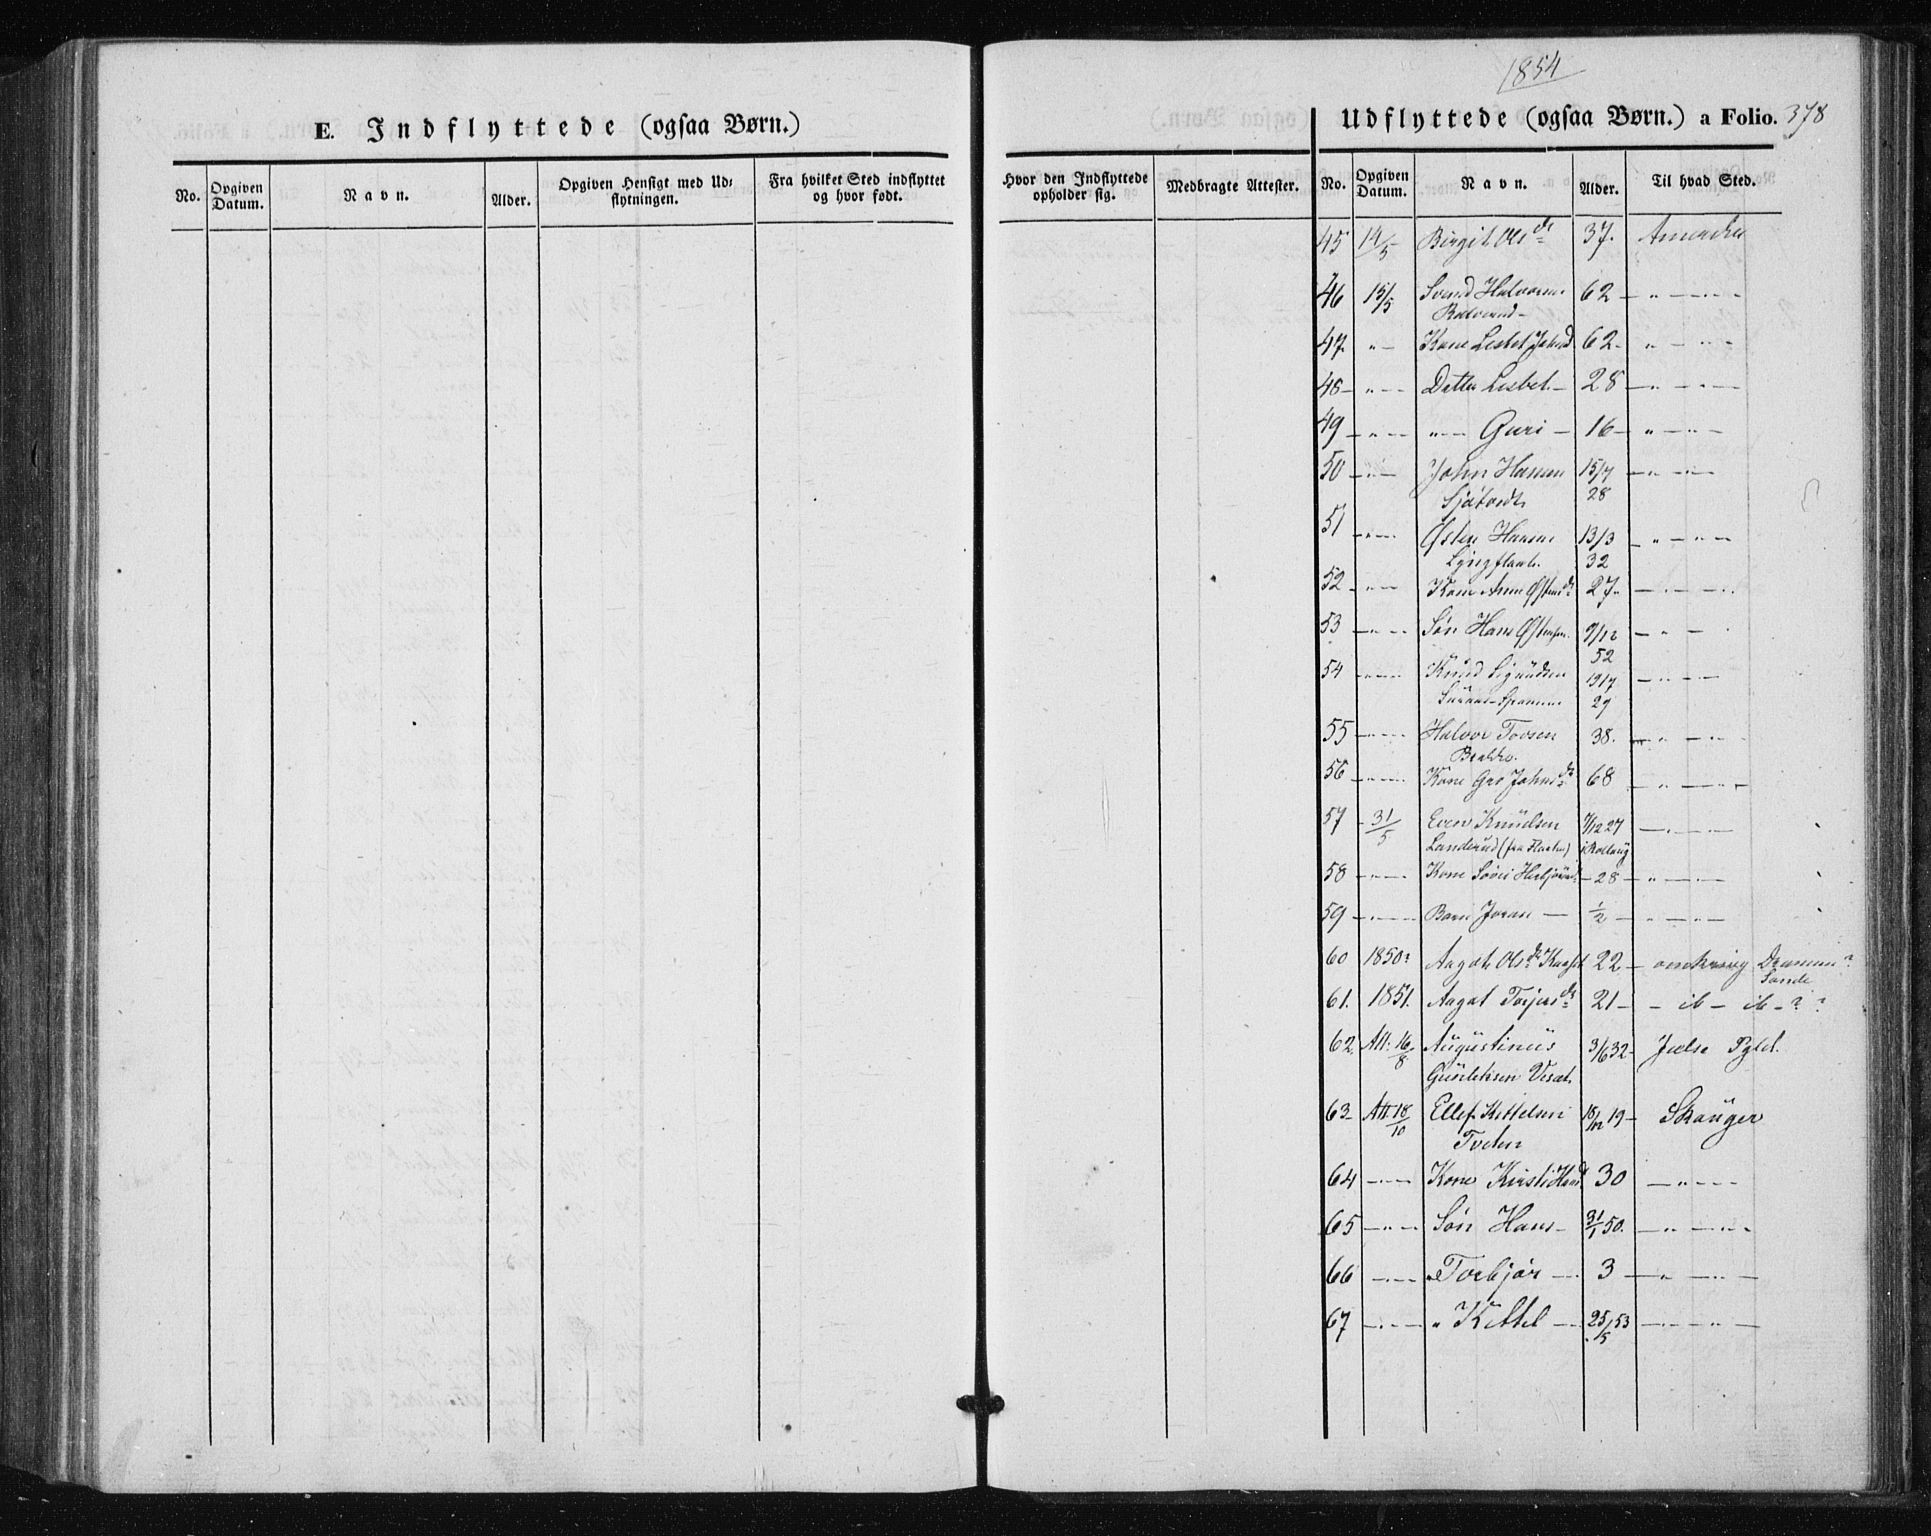 1854
E. Indflyttede (ogsaa Børn.)
Udflyttede (ogsaa Børn.) a Folio. 378
No. Opgiven Datum. Navn. Alder. Opgiven Hensigt med Udflytningen. Fra hvilket Sted indflyttet og hvor født.
Hvor den Indflyttede opholder sig. Medbragte Attester. No. Opgiven Datum. Navn. Alder. Til hvad Sted.
45 14/5 - Birgit Olsdr 37. Amerika
46 15/5 Svend Halvorsen 62 - " - - " -
47. " - Kone Lisbet Johnsd 62 - " - " -
48 - " - Datter Lisbet - 28 - " - - -
49 - " - - " - Guri - 16 - " - " -
50 - " - John Hansen 15/7 - " - " -
28
51 - " - Østen Hansen 13/3 - " - " -
32
52 - " - Kone Anne Østensdr 27. - " - " -
53 - " - Søn Hans Østensen. 9/12 - " -
52
54 - " - Knud Sigurdsen 19/7 - " -
29
55 - " - Halvor Tovsen 38. " - " -
56 - " - Kone Gro Johnsdr 68 - " - " -
57 - 31/5 Even Knudsen 7/12 27 - " - " -
Landerud (fra )
58 - " - Kone Herbjørnsd - 28 - " - " -
59 - " - Barn Joran - 1/2 - " - " -
60 1850? Aagot Olsdr 22 - omkring Drammen?
Sande
61. 1851. Aagot Torjersdr 21 - - ib - ib - ? ?
62. Att: 16/8 Augustinus 3/6 32 - Jelse Pgld.
Gunleiksen
63 - Att. 18/10 Ellef Kittelsen 18/12 19 - Skauger
Tveten
64 - " - Kone Kirsti Hansd 30 - " - -
65 - " - Søn Hans - 31/1 50. - " - " -
66 - " - " Torbjør - 3 - " - " -
67 - " - " Kittel - 25/5 53 - " - " -